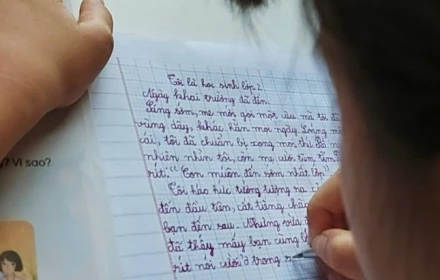 Tôi là học sinh lớp 2
Ngày khai trường đã đến.
Sáng sớm, mẹ mới gọi một câu mà tôi đã
vùng dậy, khác hẳn mọi ngày. Loáng m
cái, tôi đã chuẩn bị xong mọi thứ. Bố n
nhiên nhìn tôi, còn mẹ cười tủm tỉm
rít: "Con muốn đến sớm nhất lớp
Tôi háo hức tưởng tượng ra c
đến đầu tiên, cất tiếng chào
bạn đến sau. Nhưng vừa đ
đã thấy mấy bạn cùng l
rít nói cười ở trong s
? Vì sao?